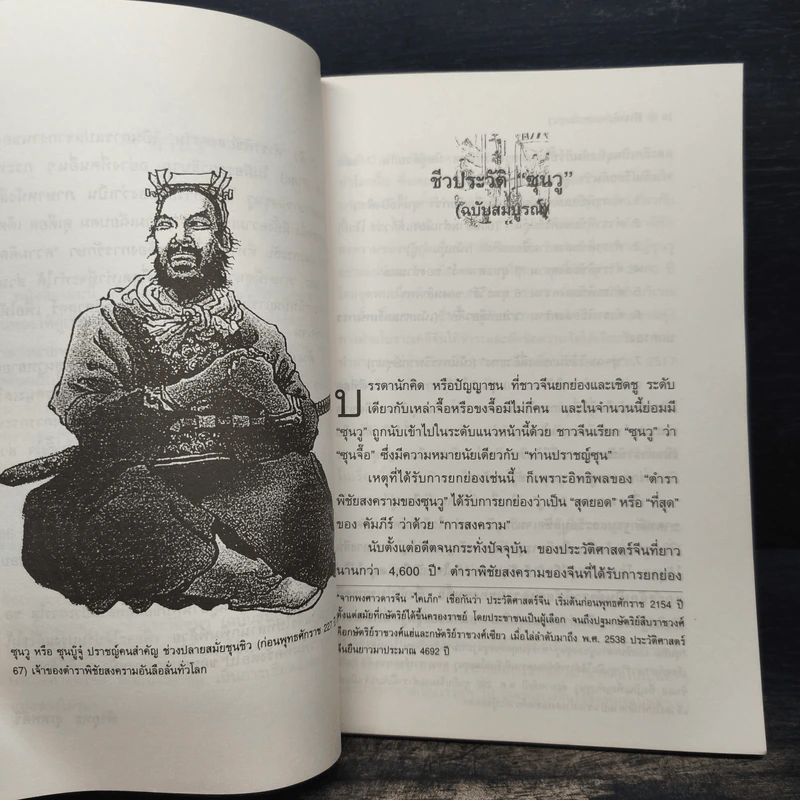 ซุนวู หรือ ซุนบู๊จู๊ ปราชญ์คนสำคัญ ช่วงปลายสมัยชุนชิว (ก่อนพุทธศักราช 227
67) เจ้าของตำราพิชัยสงครามอันลือลั่นทั่วโลก
ชีวประวัติ "ซุนวู"
(ฉบับสมบูรณ์)
บรรดานักคิด หรือปัญญาชน ที่ชาวจีนยกย่องและเชิดชู ระดับ
เดียวกับเหล่าจื๊อหรือขงจื๊อมีไม่กี่คน และในจำนวนนี้ย่อมมี
"ซุนวู" ถูกนับเข้าไปในระดับแนวหน้านี้ด้วย ชาวจีนเรียก "ซุนวู" ว่า
"ซุนจื๊อ" ซึ่งมีความหมายนัยเดียวกับ "ท่านปราชญ์ซุน"
เหตุที่ได้รับการยกย่องเช่นนี้ ก็เพราะอิทธิพลของ "ตำรา
พิชัยสงครามของซุนวู" ได้รับการยกย่องว่าเป็น "สุดยอด" หรือ "ที่สุด"
ของ คัมภีร์ ว่าด้วย "การสงคราม"
นับตั้งแต่อดีตจนกระทั่งปัจจุบัน ของประวัติศาสตร์จีนที่ยาว
นานกว่า 4,600 ปี* ตำราพิชัยสงครามของจีนที่ได้รับการยกย่อง
*จากพงศาวดารจีน "ไคเภ็ก" เชื่อกันว่า ประวัติศาสตร์จีน เริ่มต้นก่อนพุทธศักราช 2154 ปี
ตั้งแต่สมัยที่กษัตริย์ได้ขึ้นครองราชย์ โดยประชาชนเป็นผู้เลือก จนถึงปฐมกษัตริย์สืบราชวงศ์
คือกษัตริย์ราชวงศ์แฮ่และกษัตริย์ราชวงศ์เซียว เมื่อไล่ลำดับมาถึง พ.ศ. 2538 ประวัติศาสตร์
จีนยืนยาวมาประมาณ 4692 ปี